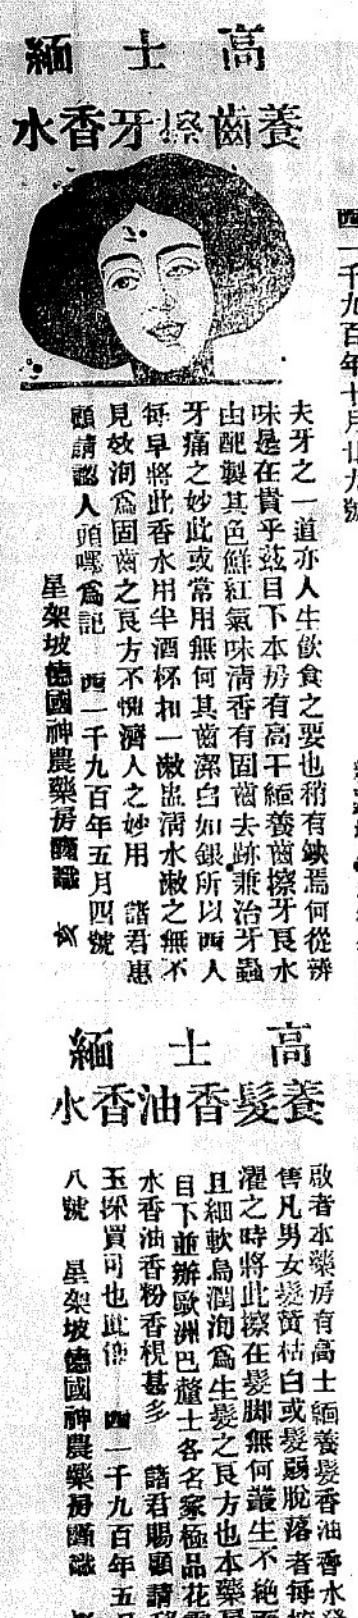 西一千九百年十月廿九號
高士緬
養齒擦牙香水
夫牙之一道亦人生飲食之要也稍有缺焉何從辨
味是在貴乎茲目下本房有高士緬養齒擦牙良水
由配製其色鮮紅氣味清香有固齒去跡兼治牙蟲
牙痛之妙此或常用無何其齒潔白如銀所以西人
每早將此香水用半酒杯扣一漱盅清水漱之無不
見效洵為固齒之良方不愧濟人之妙用 諸君惠
顧請認人頭嘜為記 西一千九百年五月四號
星架坡德國神農藥房謹識
高士緬
養髮香油香水
啟者本藥房有高士緬養髮香油香水
售凡男女髮黃枯白或髮弱脫落者每
濯之時將此擦在髮脚無何叢生不絕
且細軟烏潤洵為生髮之良方也本藥
目下並辦歐洲巴釐士各名家極品花
水香油香粉香梘甚多 諸君賜顧請
玉採買可也此佈 西一千九百年五
八號 星架坡德國神農藥房謹識